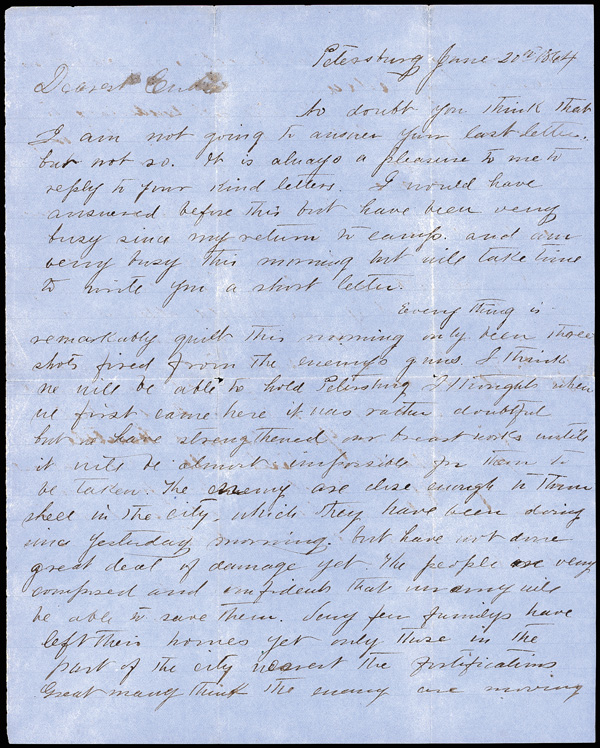 Petersburg June 20th 1864
Dearest
No doubt you think that
I am not going to answer your last letter.
but not so. It is always a pleasure to me to
reply to your kind letters. I would have
answered before this but have been very
busy since my return to camp. and am
very busy this morning but will take time
to write you a short letter.
Every thing is
remarkably quiet this morning only been three
shots fired from the enemys guns. I think
we will be able to hold Petersburg I thought when
we first came here it was rather doubtful
but we have strengthened our breastworks until
it will be almost impossible for them to
be taken. The enemy are close enough to throw
shell in the city, which they have been doing
since yesterday morning. but have not done
great deal of damage yet. The people are very
composed and confident that our army will
be able to save them. Very few familys have
left their homes yet only those in the
part of the city nearest the fortifications
Great many think the enemy are moving